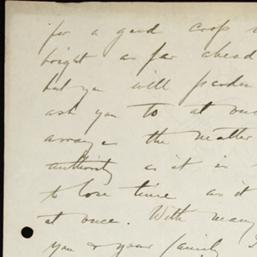 for a good crop
bright as far ahead
but you will pardon
ask you to at once
arrange the matter
authority as it is
to lose time as it
at once. With many
you & your family